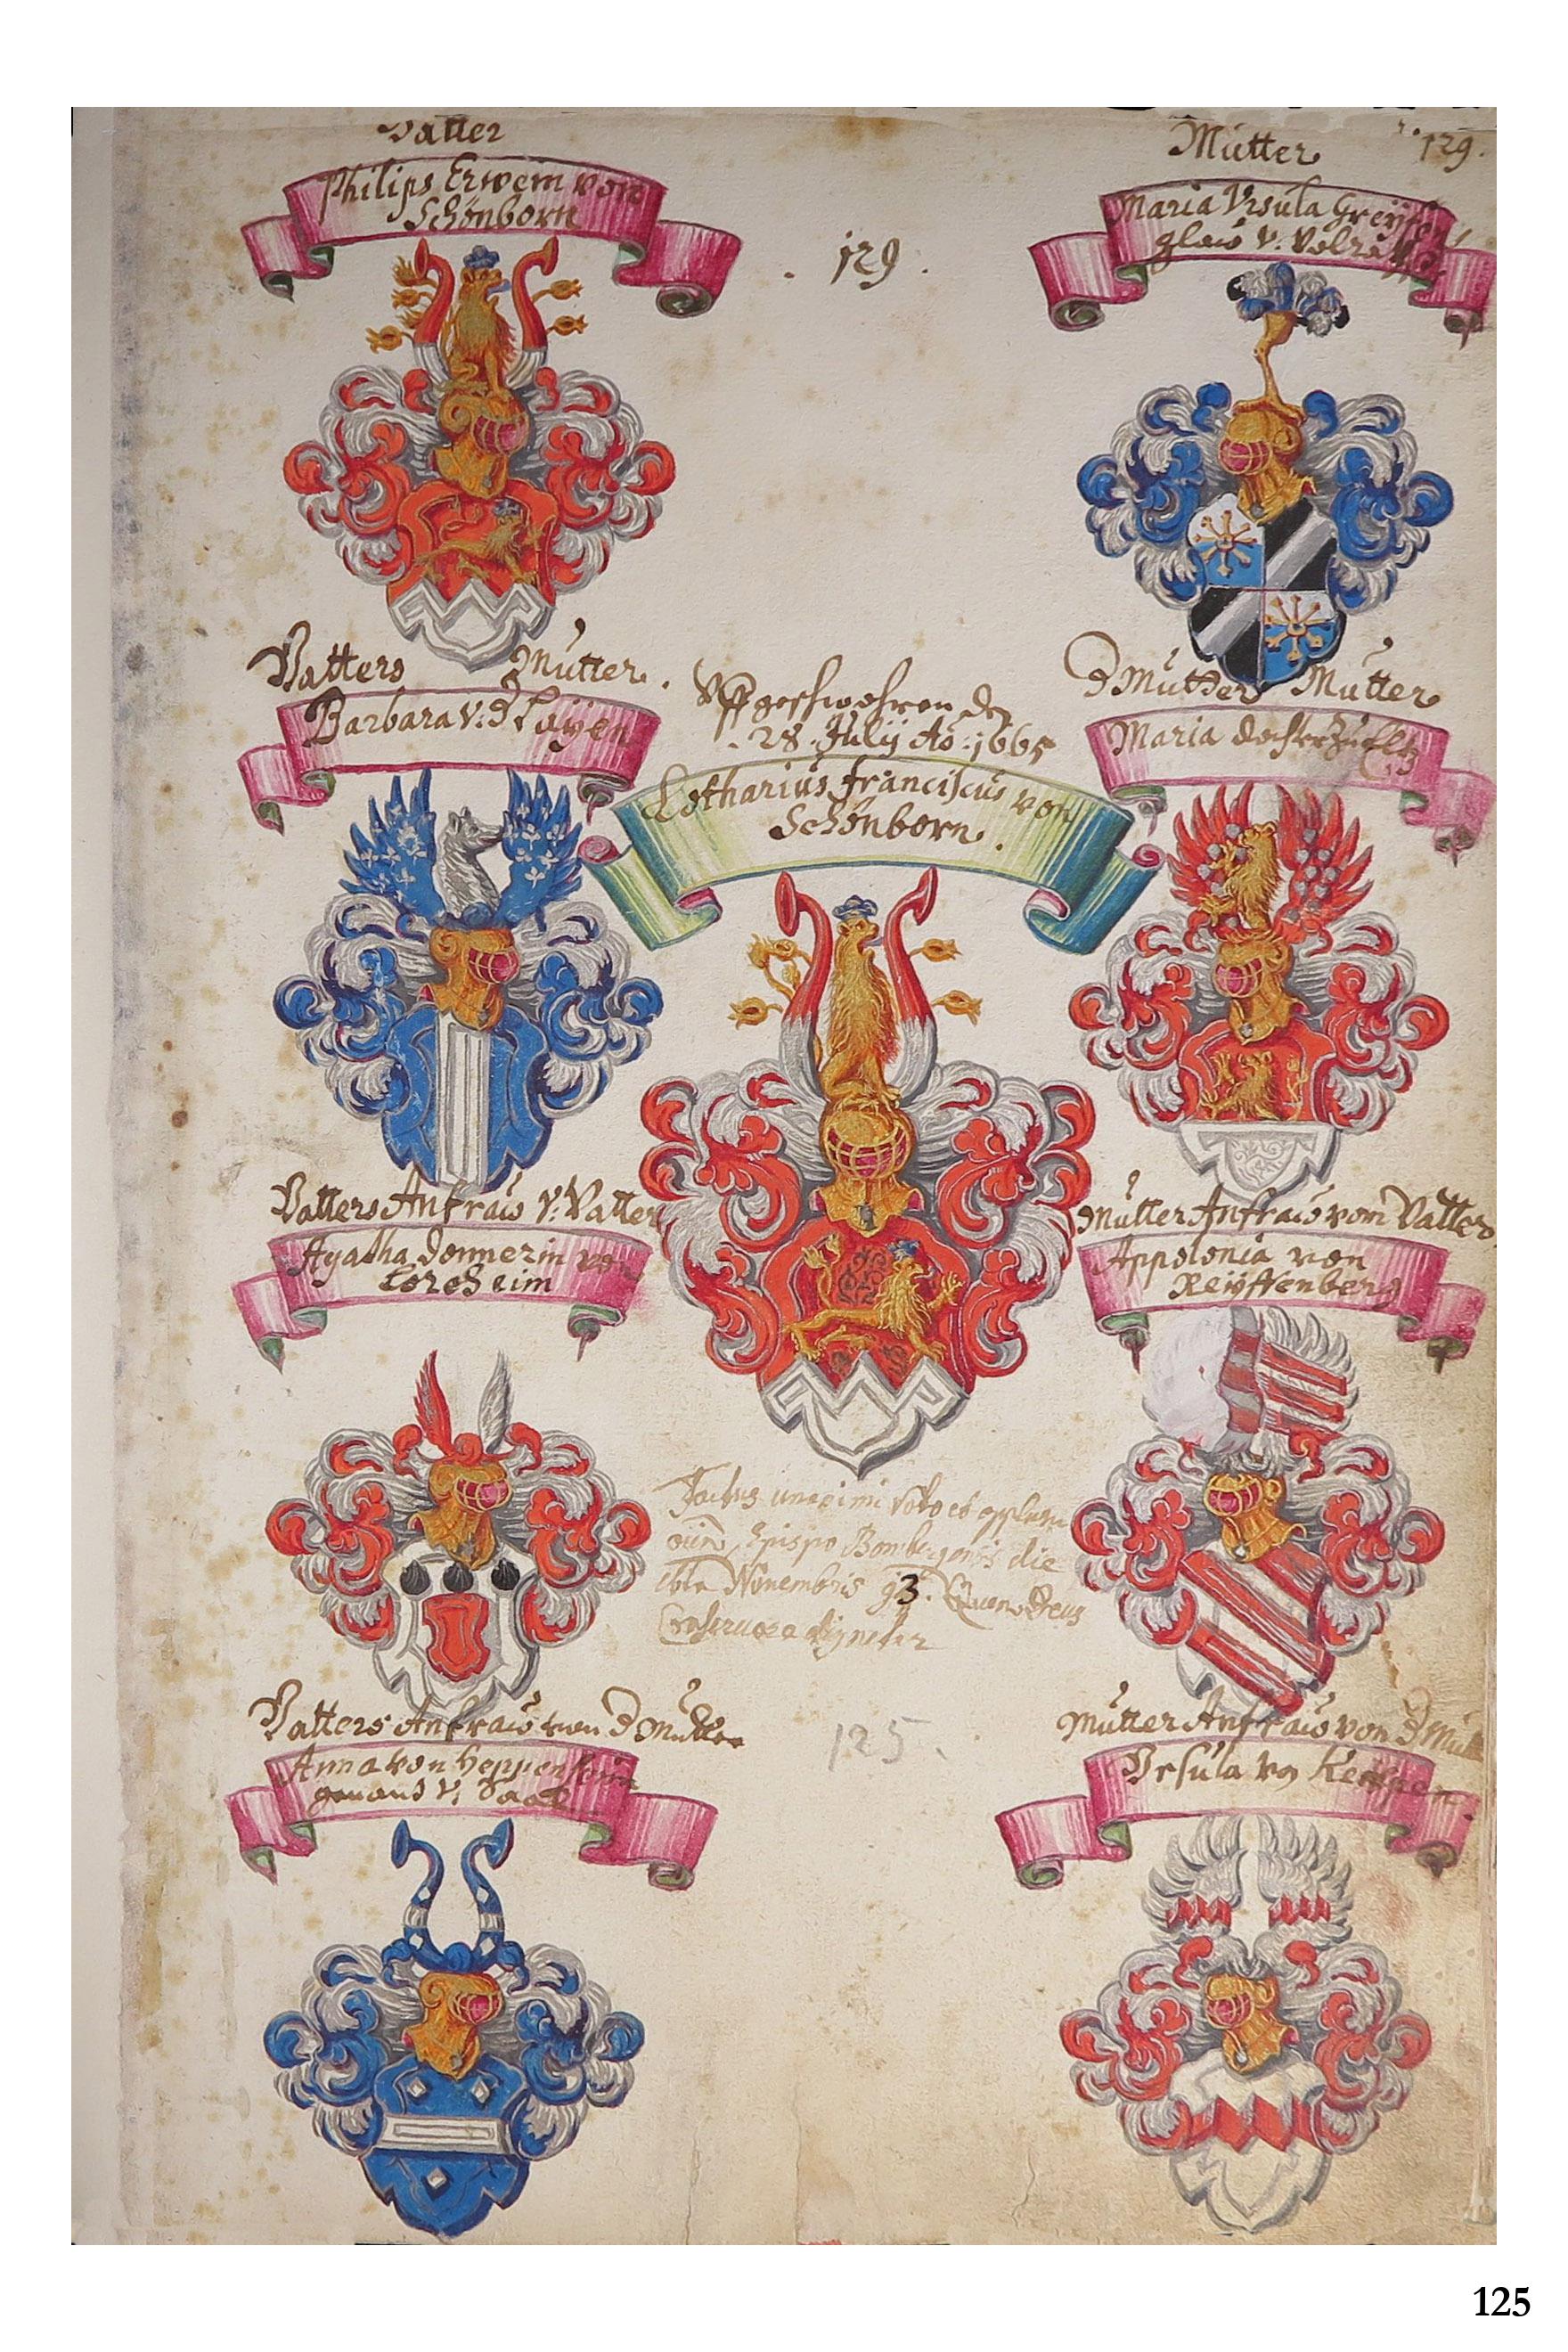 Vatter
Philips Erwein von
Schönborn
Mutter
129.
Maria Vrsula Greyffen
glaw v. Volra
. 129 .
Vatters Mutter.
Barbara v: d Layen
Vffgeschwohren den
28. Julij Ao: 1665
Lotharius franciscus von
Schönborn.
d Mutter Mutter
Maria
Vatters Anfraw v: Vatter
Agatha Donnerin von
Loresheim
Mutter Anfraw vom Vatter
Appolonia von
Reyffenberg
Factus unanimi voto et applausu
Epispo Bambergensis die
Novembris 93. Quem Deus
Conservare dignetur
Vatters Anfraw von d Mutter
Anna von Heppenheim
genand v. Saal
125.
Mutter Anfraw von d Mutt
Vrsula von
125